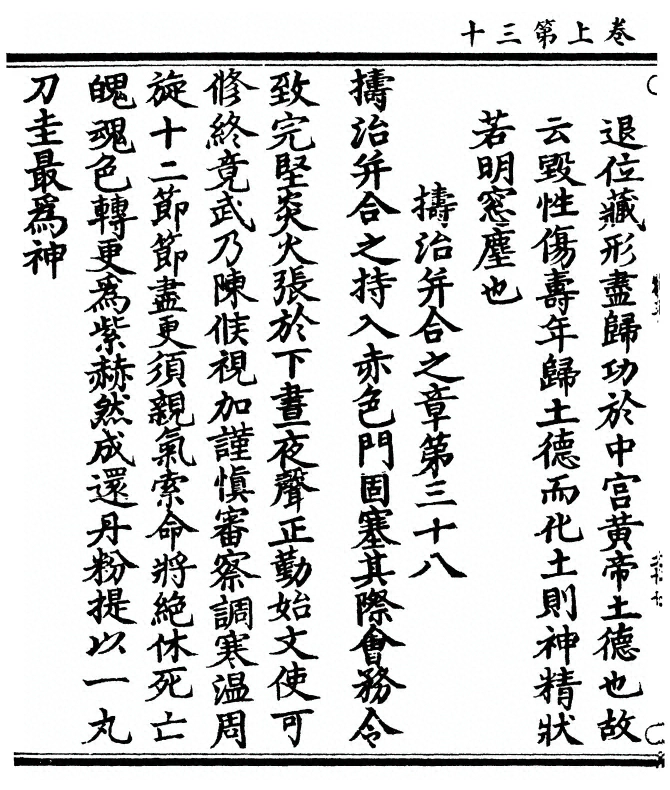 卷上第三十
退位藏形盡歸功於中宮黃帝土德也故
云毀性傷壽年歸土德而化土則神精狀
若明窓塵也
擣治并合之章第三十八
擣治并合之持入赤色門固塞其際會務令
致完堅炎火張於下晝夜聲正勤始文使可
修終竟武乃陳候視加謹慎審察調寒温周
旋十二節節盡更須親氣索命將絕休死亡
魄魂色轉更爲紫赫然成還丹粉提以一丸
刀圭最爲神